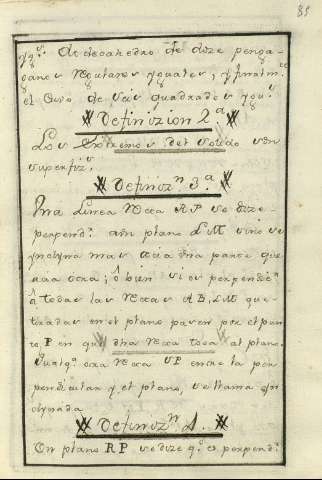 85
yg.s Dodecahedro de doze pentagonos
gonos regulares yguales, y finalm.te
el Cuvo de seis quadrados yg.s
Definizion 2.ª
Los Extremos del solido son
superfiz.s
Definiz.n 3.ª
Una Linea recta RP se dize
perpend.r a un plano LM sino se
ynclyna mas azia una parte que
azia otra; ô bien si es perpendic.r
â todas las rectas AB, LM que
tiradas en el plano pasen por el pun
to P en que dha recta toca al plano.
qualq.a otra recta SP entre la per
pendicular y el plano, se llama yn
clynada
Definiz.n 4.
Un plano RP se dize q.e es perpend.r